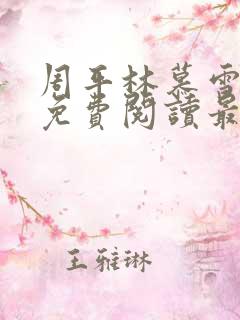 周平林慕雪
免費閱讀最
王雅琳